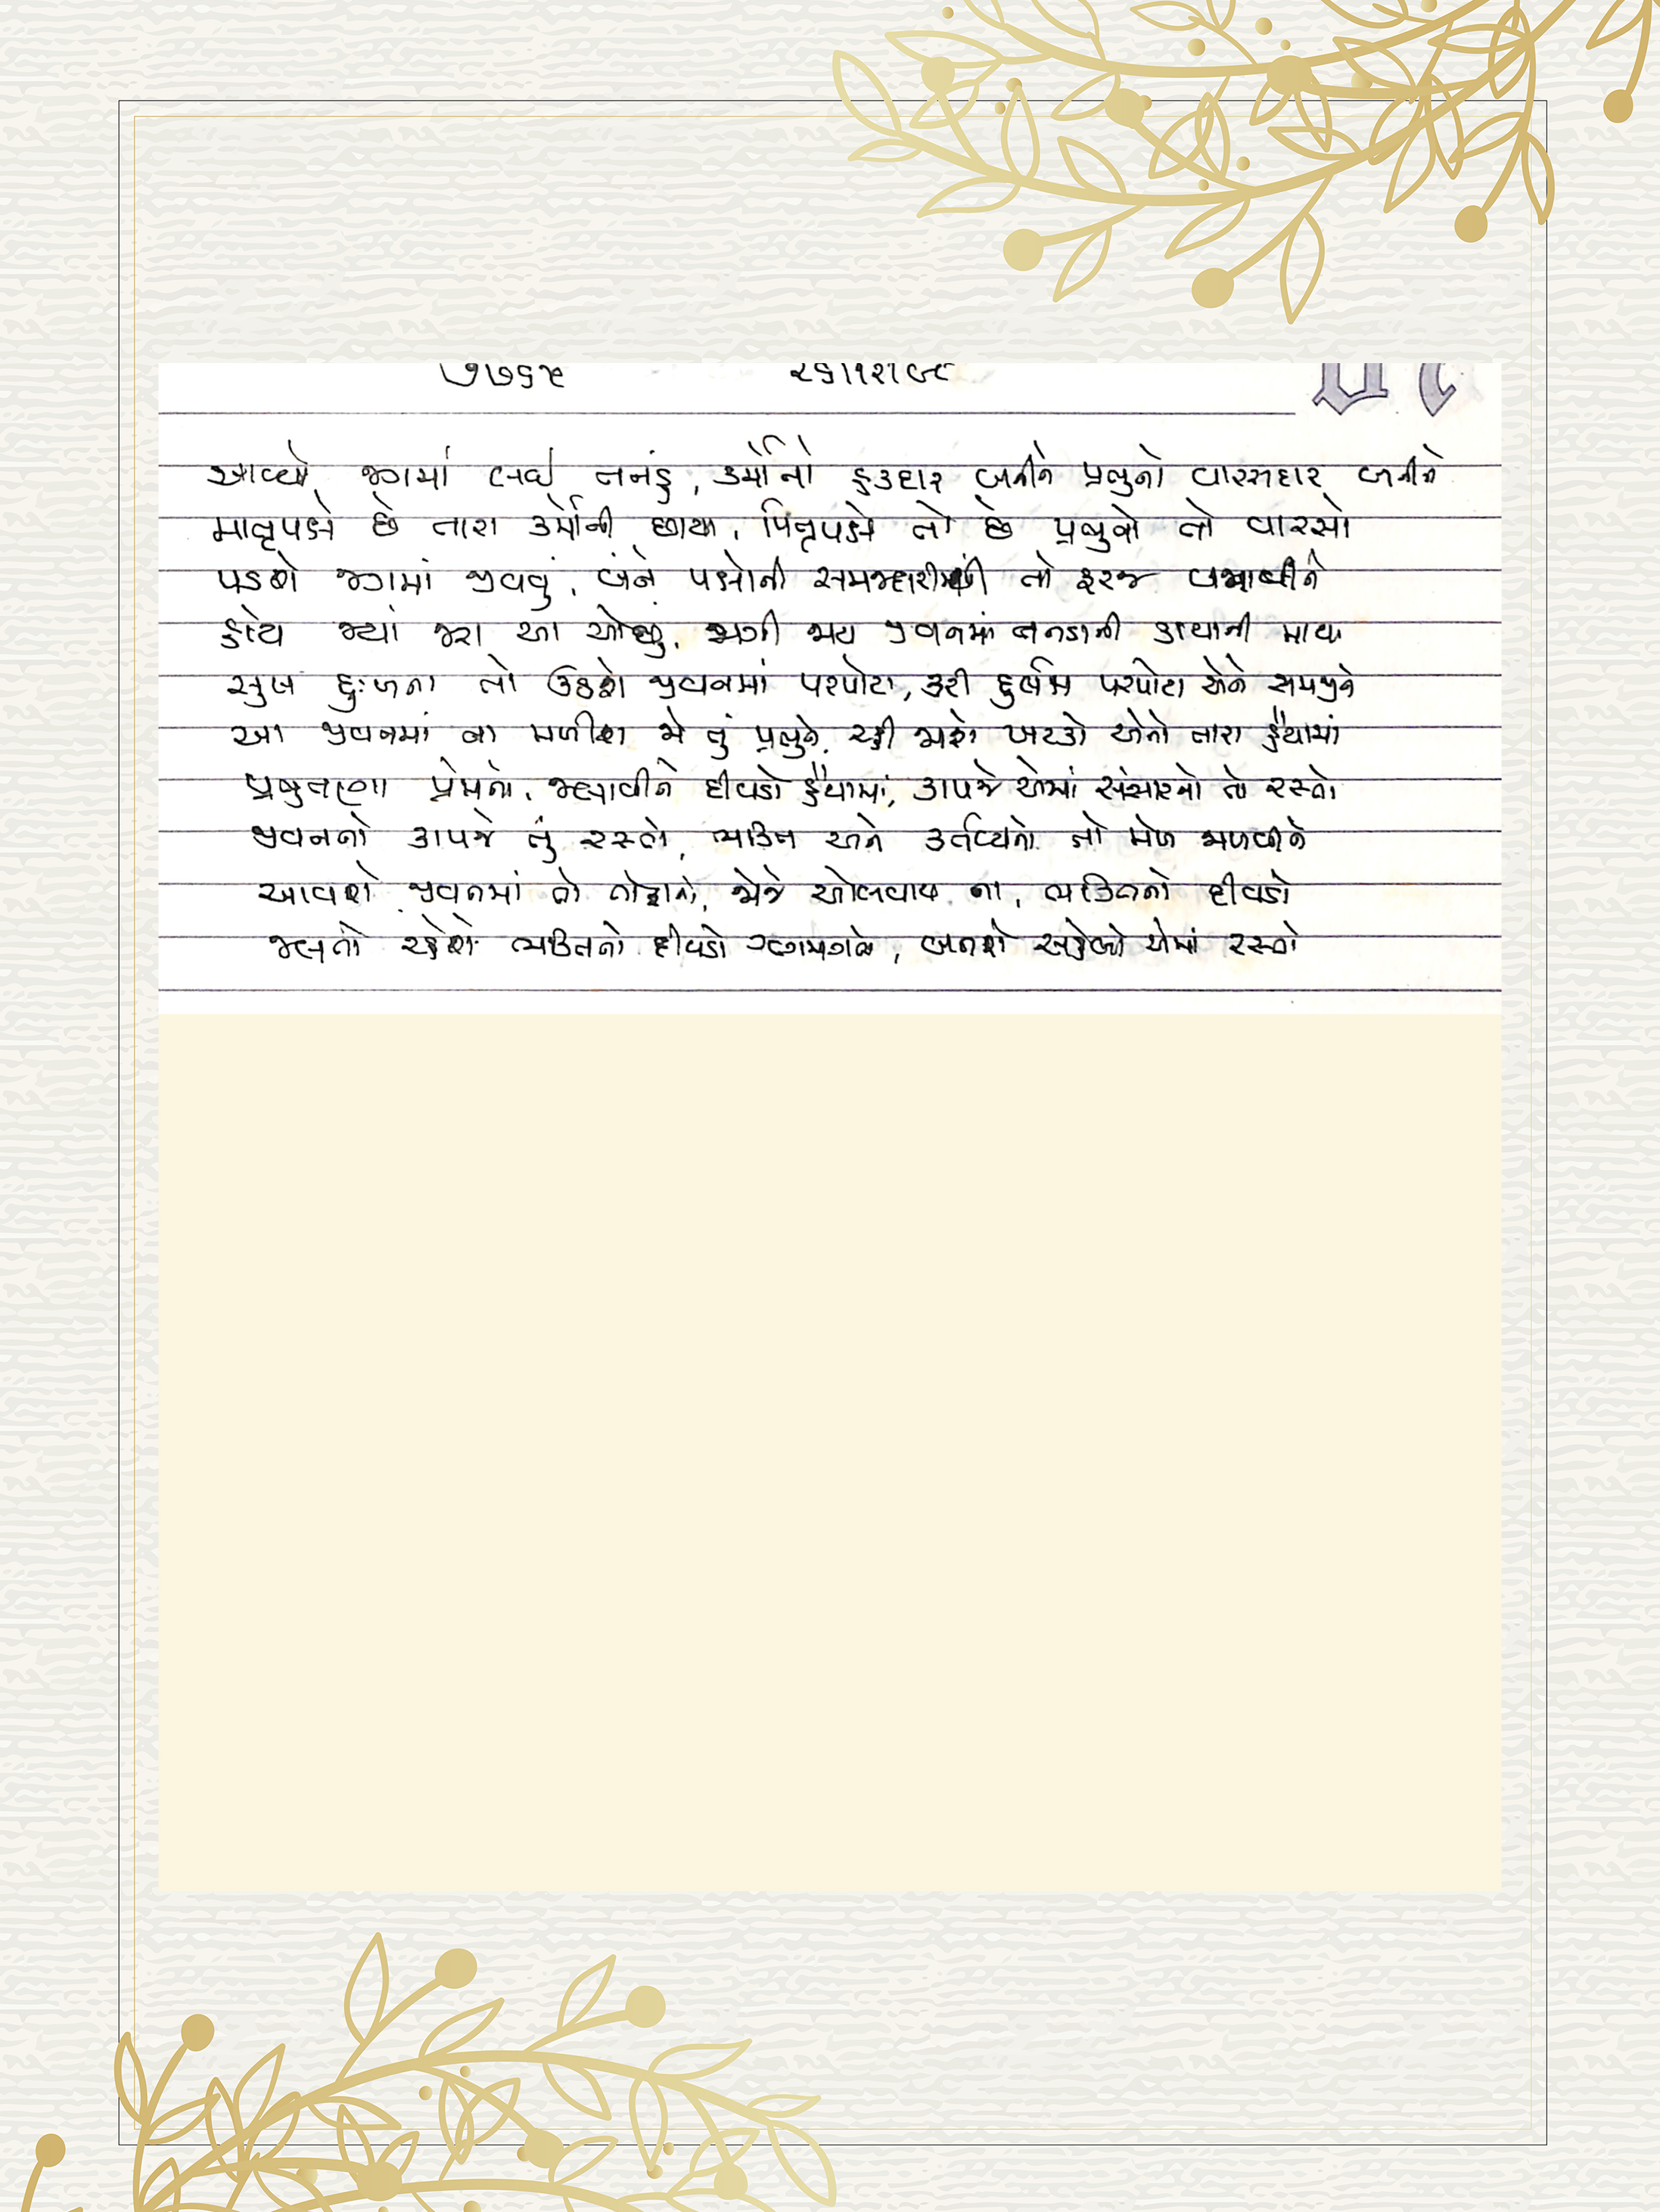 આવ્યો જગમાં લઈ તનડું, કર્મોનો હકદાર બનીને પ્રભુનો વારસદાર બનીને
માતૃપક્ષે છે તારા કર્મોની છાયા, પિતૃપક્ષે તો છે પ્રભુનો તો વારસો
પડશે જગમાં જીવવું, બંને પક્ષોની સમજદારીથી તો ફરજ બજાવીને
હોય જ્યાં જરા આ ઓછું, જાગી જાય જીવનમાં તનડાની કાયાની માયા
સુખ દુઃખના તો ઉઠશે જીવનમાં પરપોટા, કરી દુર્લભ પરપોટા એને સમજીને
આ જીવનમાં ના મળીશ જો તું પ્રભુને, રહી જાશે ખટકો એનો તારા હૈયામાં
પ્રભુતણા પ્રેમનો, જલાવીને દીવડો હૈયામાં, કાપજે એમાં સંસારનો તો રસ્તો
જીવનનો કાપજે તું રસ્તો, ભક્તિ અને કર્તવ્યનો તો મેળ મેળવીને
આવશે જીવનમાં તો તોફાનો, જોજે ઓલવાય ના, ભક્તિનો દીવડો
જલતો રહેશે ભક્તિનો દીવડો ઝગમગતો, બનશે સહેલો એમાં રસ્તો